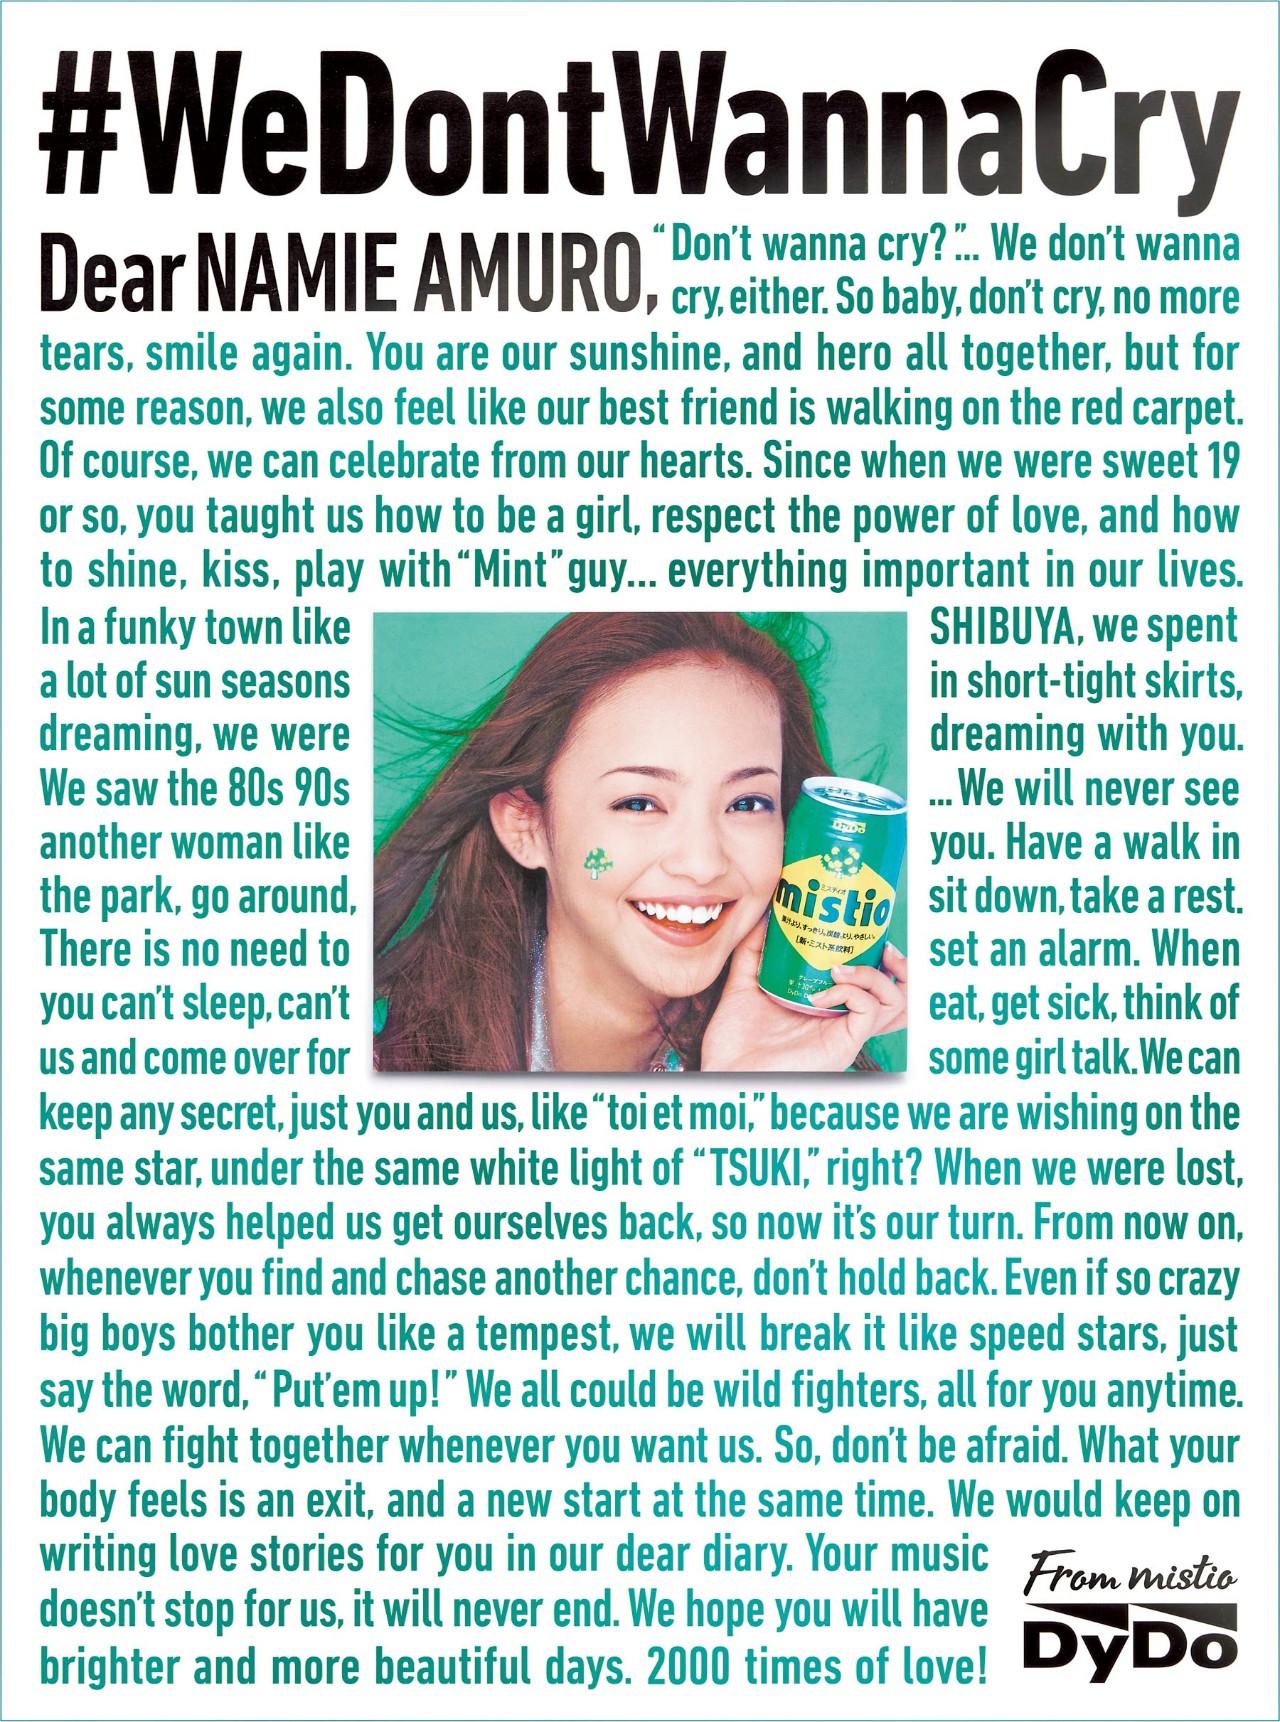 #WeDontWannaCry
Dear NAMIE AMURO, “Don't wanna cry?”... We don't wanna
cry, either. So baby, don't cry, no more
tears, smile again. You are our sunshine, and hero all together, but for
some reason, we also feel like our best friend is walking on the red carpet.
Of course, we can celebrate from our hearts. Since when we were sweet 19
or so, you taught us how to be a girl, respect the power of love, and how
to shine, kiss, play with “Mint” guy... everything important in our lives.
In a funky town like SHIBUYA, we spent
a lot of sun seasons in short-tight skirts,
dreaming, we were dreaming with you.
We saw the 80s 90s ...We will never see
another woman like you. Have a walk in
the park, go around, sit down, take a rest.
There is no need to set an alarm. When
you can't sleep, can't eat, get sick, think of
us and come over for some girl talk. We can
DyDo
ミスティオ
mistio
果汁より、すっきり。炭酸より、やさしい。
[新・ミスト茶飲料]
keep any secret, just you and us, like “toi et moi,” because we are wishing on the
same star, under the same white light of “TSUKI,” right? When we were lost,
you always helped us get ourselves back, so now it's our turn. From now on,
whenever you find and chase another chance, don't hold back. Even if so crazy
big boys bother you like a tempest, we will break it like speed stars, just
say the word, “Put'em up!” We all could be wild fighters, all for you anytime.
We can fight together whenever you want us. So, don't be afraid. What your
body feels is an exit, and a new start at the same time. We would keep on
writing love stories for you in our dear diary. Your music
doesn't stop for us, it will never end. We hope you will have
brighter and more beautiful days. 2000 times of love!
From mistio
DyDo